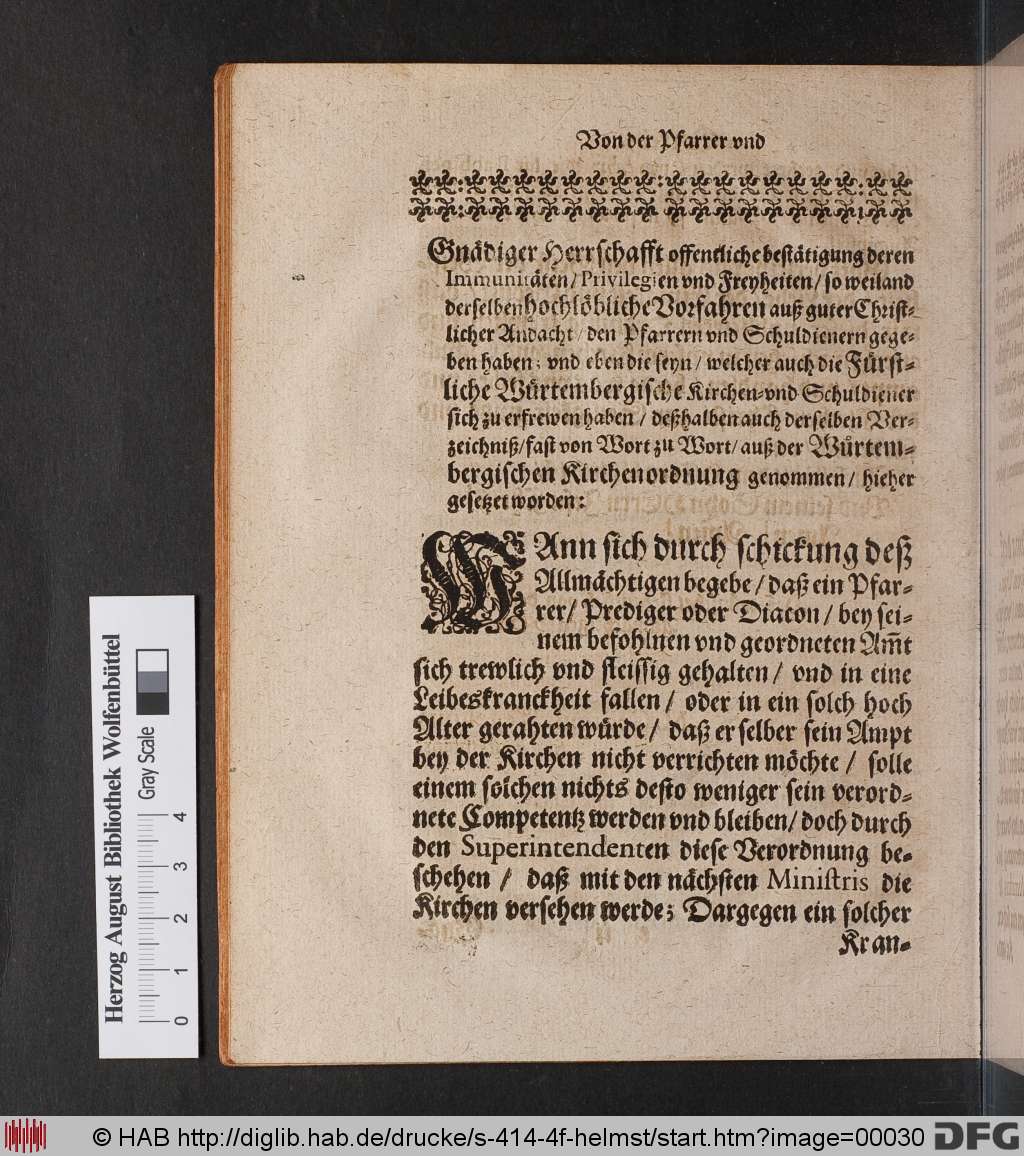 Von der Pfarrer vnd
Gnädiger Herrschafft offentliche bestätigung deren
Immunitäten / Privilegien vnd Freyheiten / so weiland
derselben hochlöbliche Vorfahren auß guter Christ-
licher Andacht / den Pfarrern vnd Schuldienern gege-
ben haben; vnd eben die seyn / welcher auch die Fürst-
liche Würtembergische Kirchen- vnd Schuldiener
sich zu erfrewen haben / deßhalben auch derselben Ver-
zeichniß / fast von Wort zu Wort / auß der Würtem-
bergischen Kirchenordnung genommen / hieher
gesetzet worden:
WAnn sich durch schickung deß
Allmächtigen begebe / daß ein Pfar-
rer / Prediger oder Diacon / bey sei-
nem befohlnen vnd geordneten Am̃t
sich trewlich vnd fleissig gehalten / vnd in eine
Leibeskranckheit fallen / oder in ein solch hoch
Alter gerahten würde / daß er selber sein Ampt
bey der Kirchen nicht verrichten möchte / solle
einem solchen nichts desto weniger sein verord-
nete Competentz werden vnd bleiben / doch durch
den Superintendenten diese Verordnung be-
schehen / daß mit den nächsten Ministris die
Kirchen versehen werde; Dargegen ein solcher
Kran-
Herzog August Bibliothek Wolfenbüttel
Gray Scale
0 1 2 3 4
© HAB http://diglib.hab.de/drucke/s-414-4f-helmst/start.htm?image=00030 DFG